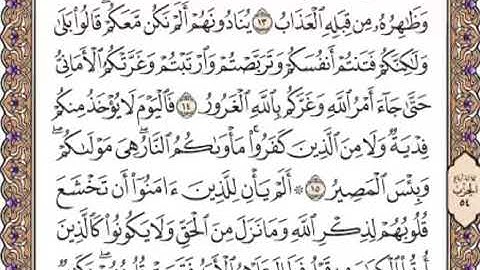 وَظَٰهِرُهُۥ مِن قِبَلِهِ ٱلْعَذَابُ ١٣ يُنَادُونَهُمْ أَلَمْ نَكُن مَّعَكُمْ ۖ قَالُوا۟ بَلَىٰ
وَلَٰكِنَّكُمْ فَتَنتُمْ أَنفُسَكُمْ وَتَرَبَّصْتُمْ وَٱرْتَبْتُمْ وَغَرَّتْكُمُ ٱلْأَمَانِىُّ
حَتَّىٰ جَآءَ أَمْرُ ٱللَّهِ وَغَرَّكُم بِٱللَّهِ ٱلْغَرُورُ ١٤ فَٱلْيَوْمَ لَا يُؤْخَذُ مِنكُمْ
فِدْيَةٌ وَلَا مِنَ ٱلَّذِينَ كَفَرُوا۟ ۚ مَأْوَىٰكُمُ ٱلنَّارُ ۖ هِىَ مَوْلَىٰكُمْ ۖ
وَبِئْسَ ٱلْمَصِيرُ ١٥ ۞ أَلَمْ يَأْنِ لِلَّذِينَ ءَامَنُوٓا۟ أَن تَخْشَعَ
قُلُوبُهُمْ لِذِكْرِ ٱللَّهِ وَمَا نَزَلَ مِنَ ٱلْحَقِّ وَلَا يَكُونُوا۟ كَٱلَّذِينَ
الحزب
٥٤